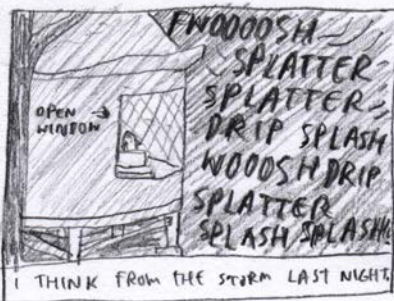 FWOOOOSH
SPLATTER
SPLATTER
DRIP SPLASH
WOOOSH DRIP
SPLATTER
SPLASH SPLASH!!
OPEN →
WINDOW
I THINK FROM THE STORM LAST NIGHT,